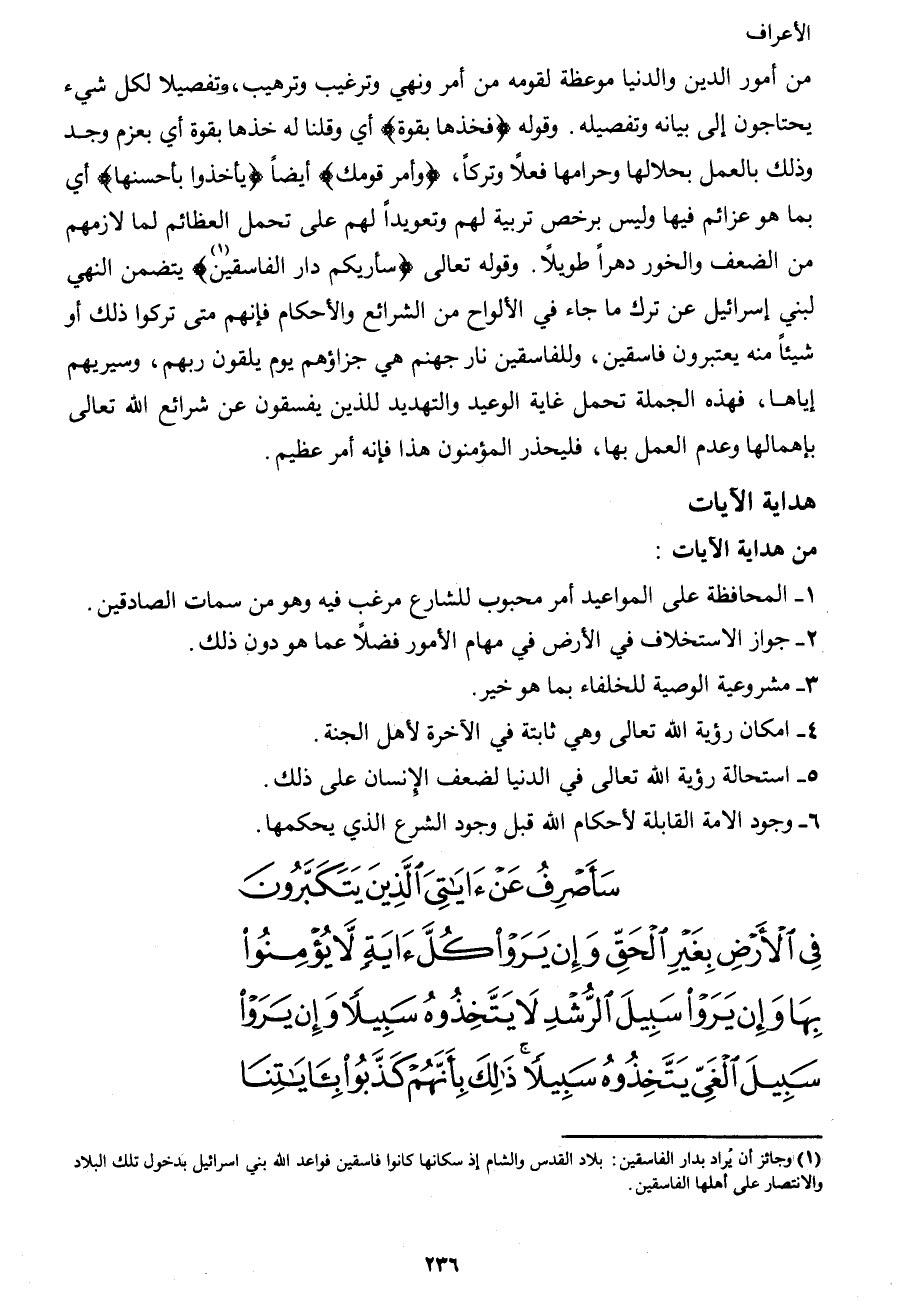 الأعراف
من أمور الدين والدنيا موعظة لقومه من أمر ونهي وترغيب وترهيب، وتفصيلا لكل شيء
يحتاجون إلى بيانه وتفصيله. وقوله ﴿فخذها بقوة﴾ أي وقلنا له خذها بقوة أي بعزم وجد
وذلك بالعمل بحلالها وحرامها فعلاً وتركاً، ﴿وأمر قومك﴾ أيضاً ﴿يأخذوا بأحسنها﴾ أي
بما هو عزائم فيها وليس برخص تربية لهم وتعويداً لهم على تحمل العظائم لما لازمهم
من الضعف والخور دهراً طويلاً. وقوله تعالى ﴿سأريكم دار الفاسقين(١)﴾ يتضمن النهي
لبني إسرائيل عن ترك ما جاء في الألواح من الشرائع والأحكام فإنهم متى تركوا ذلك أو
شيئاً منه يعتبرون فاسقين، وللفاسقين نار جهنم هي جزاؤهم يوم يلقون ربهم، وسيريهم
إياها، فهذه الجملة تحمل غاية الوعيد والتهديد للذين يفسقون عن شرائع الله تعالى
بإهمالها وعدم العمل بها، فليحذر المؤمنون هذا فإنه أمر عظيم.
هداية الآيات
من هداية الآيات :
١ـ المحافظة على المواعيد أمر محبوب للشارع مرغب فيه وهو من سمات الصادقين.
٢ـ جواز الاستخلاف في الأرض في مهام الأمور فضلاً عما هو دون ذلك.
٣ـ مشروعية الوصية للخلفاء بما هو خير.
٤ـ امكان رؤية الله تعالى وهي ثابتة في الآخرة لأهل الجنة.
٥ـ استحالة رؤية الله تعالى في الدنيا لضعف الإنسان على ذلك.
٦ـ وجود الامة القابلة لأحكام الله قبل وجود الشرع الذي يحكمها.
سَأَصْرِفُ عَنْ ءَايَٰتِىَ ٱلَّذِينَ يَتَكَبَّرُونَ
فِى ٱلْأَرْضِ بِغَيْرِ ٱلْحَقِّ وَإِن يَرَوْا۟ كُلَّ ءَايَةٍ لَّا يُؤْمِنُوا۟
بِهَا وَإِن يَرَوْا۟ سَبِيلَ ٱلرُّشْدِ لَا يَتَّخِذُوهُ سَبِيلًا وَإِن يَرَوْا۟
سَبِيلَ ٱلْغَىِّ يَتَّخِذُوهُ سَبِيلًا ۚ ذَٰلِكَ بِأَنَّهُمْ كَذَّبُوا۟ بِـَٔايَٰتِنَا
(١) وجائز أن يُراد بدار الفاسقين: بلاد القدس والشام إذ سكانها كانوا فاسقين فواعد الله بني اسرائيل بدخول تلك البلاد
والانتصار على أهلها الفاسقين.
٢٣٦